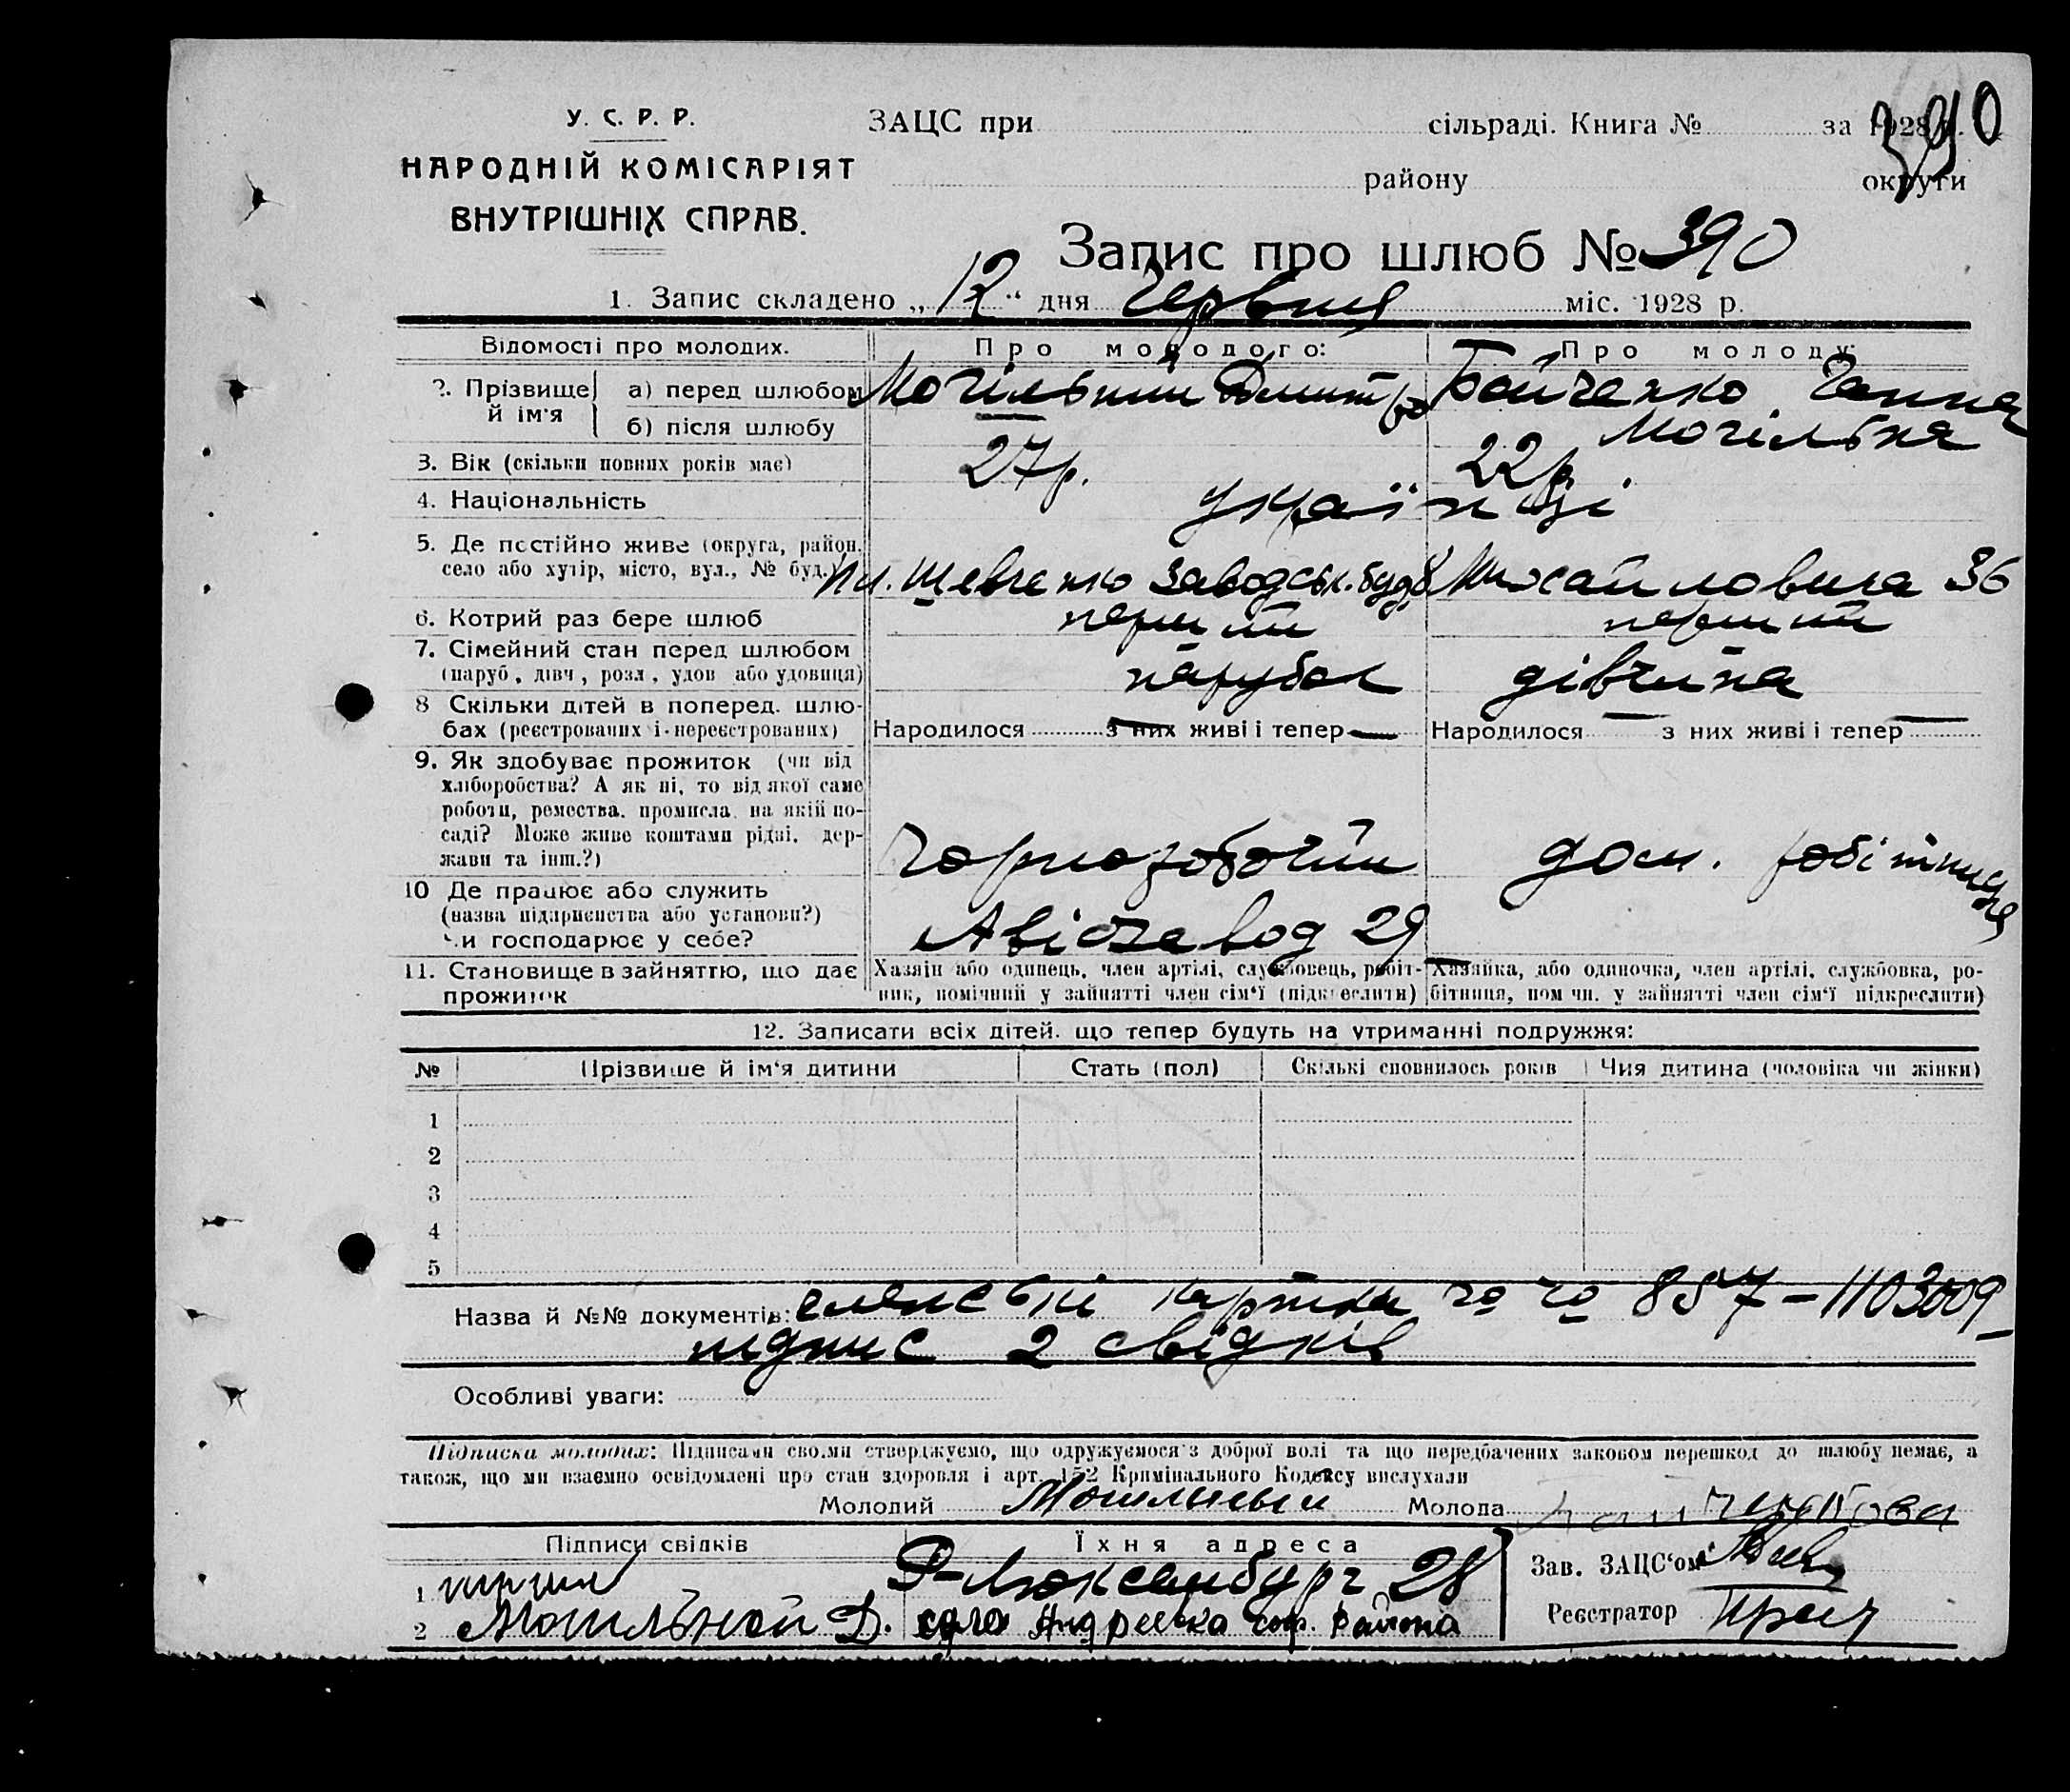 390
У. С. Р. Р.
НАРОДНІЙ КОМІСАРІЯТ
ВНУТРІШНІХ СПРАВ.
ЗАЦС при сільраді. Книга № за 1928 р.
району округи
Запис про шлюб № 390
1. Запис складено „12“ дня Червня міс. 1928 р.
Відомості про молодих. Про молодого: Про молоду:
2. Прізвище й ім'я а) перед шлюбом Могільний Дмитро Бойченко Ганна
б) після шлюбу Могільна
3. Вік (скільки повних років має) 27 р. 22 р.
4. Національність українці
5. Де постійно живе (округа, район,
село або хутір, місто, вул., № буд.) пл. Шевченко Заводськ. буд. 8 Михайловича 36
6. Котрий раз бере шлюб перший перший
7. Сімейний стан перед шлюбом
(паруб., дівч., розл., удов. або удовиця) парубок дівчина
8 Скільки дітей в поперед. шлю-
бах (реєстрованих і нереєстрованих) Народилося — з них живі і тепер — Народилося — з них живі і тепер —
9. Як здобуває прожиток (чи від
хліборобства? А як ні, то від якої саме
роботи, ремества, промисла, на якій по-
саді? Може живе коштами рідні, дер-
жави та інш.?) Чорноробочий дом. робітниця
10 Де працює або служить
(назва підприємства або установи?)
чи господарює у себе? Авіозавод 29 —
11. Становище в зайняттю, що дає
прожиток
Хазяїн або одинець, член артілі, службовець, робіт-
ник, помічний у зайнятті член сім'ї (підкреслити)
Хазяйка, або одиночка, член артілі, службовка, ро-
бітниця, помічн. у зайнятті член сім'ї підкреслити)
12. Записати всіх дітей, що тепер будуть на утриманні подружжя:
№ Прізвище й ім'я дитини Стать (пол) Скількі сповнилось років Чия дитина (чоловіка чи жінки)
1
2
3
4
5
Назва й №№ документів: членські картки 857 – 1103009
підпис 2 свідків
Особливі уваги:
Підписка молодих: Підписами своїми стверджуємо, що одружуємося з доброї волі та що передбачених законом перешкод до шлюбу немає, а
також, що ми взаємно освідомлені про стан здоровля і арт. 152 Кримінального Кодексу вислухали
Молодий Молода
Підписи свідків Їхня адреса
1 Р-Люксенбург 28
2 Могильной Д. село Андреевка района
Зав. ЗАЦС'ом
Реєстратор